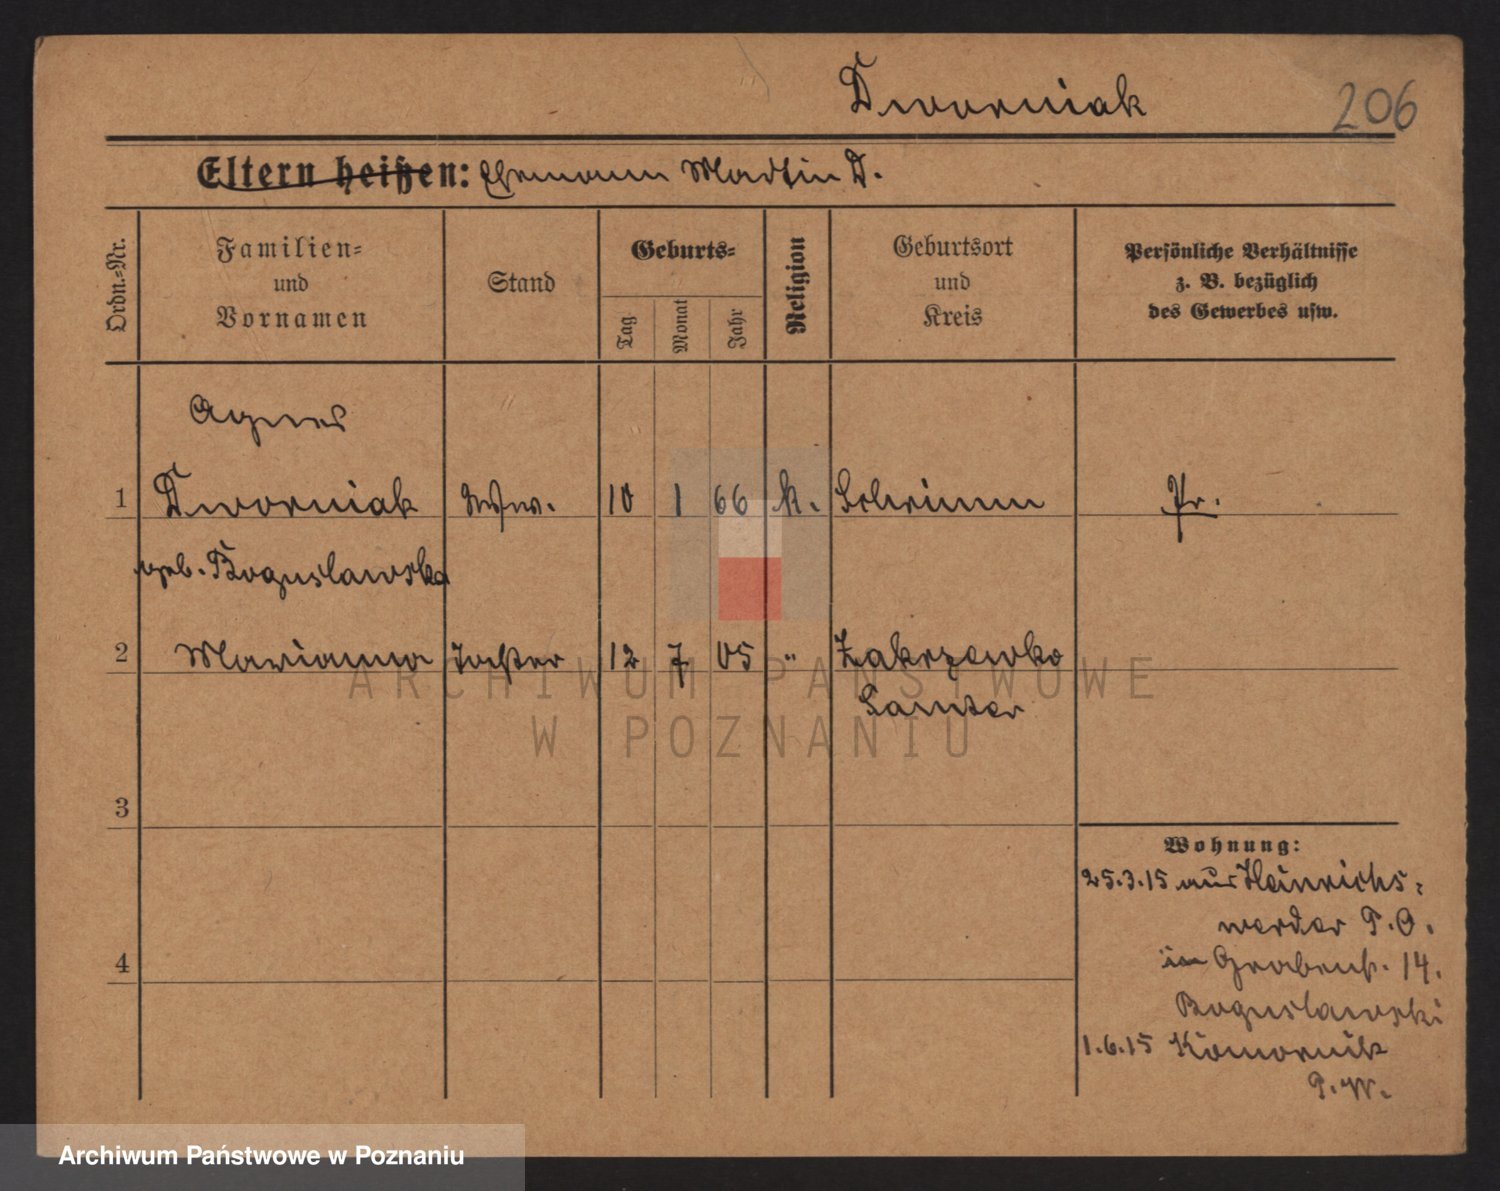 Dworniak
206
Eltern heißen: Ehemann Martin D.
Ordn.-Nr.
Familien-
und
Vornamen
Stand
Geburts-
Tag
Monat
Jahr
Religion
Geburtsort
und
Kreis
Persönliche Verhältnisse
z. B. bezüglich
des Gewerbes usw.
Agnes
1 Dworniak Wtw. 10 1 66 k. Schrimm Pr.
geb. Boguslawska
2 Marianna Tochter 12 7 05 " Zakrzewko
Samter
3
4
Wohnung:
25.3.15 aus Heinrichs-
werder P. O.
in Grabenstr. 14.
Boguslawski
1.6.15 Komornik
P. W.
ARCHIWUM PAŃSTWOWE
W POZNANIU
Archiwum Państwowe w Poznaniu